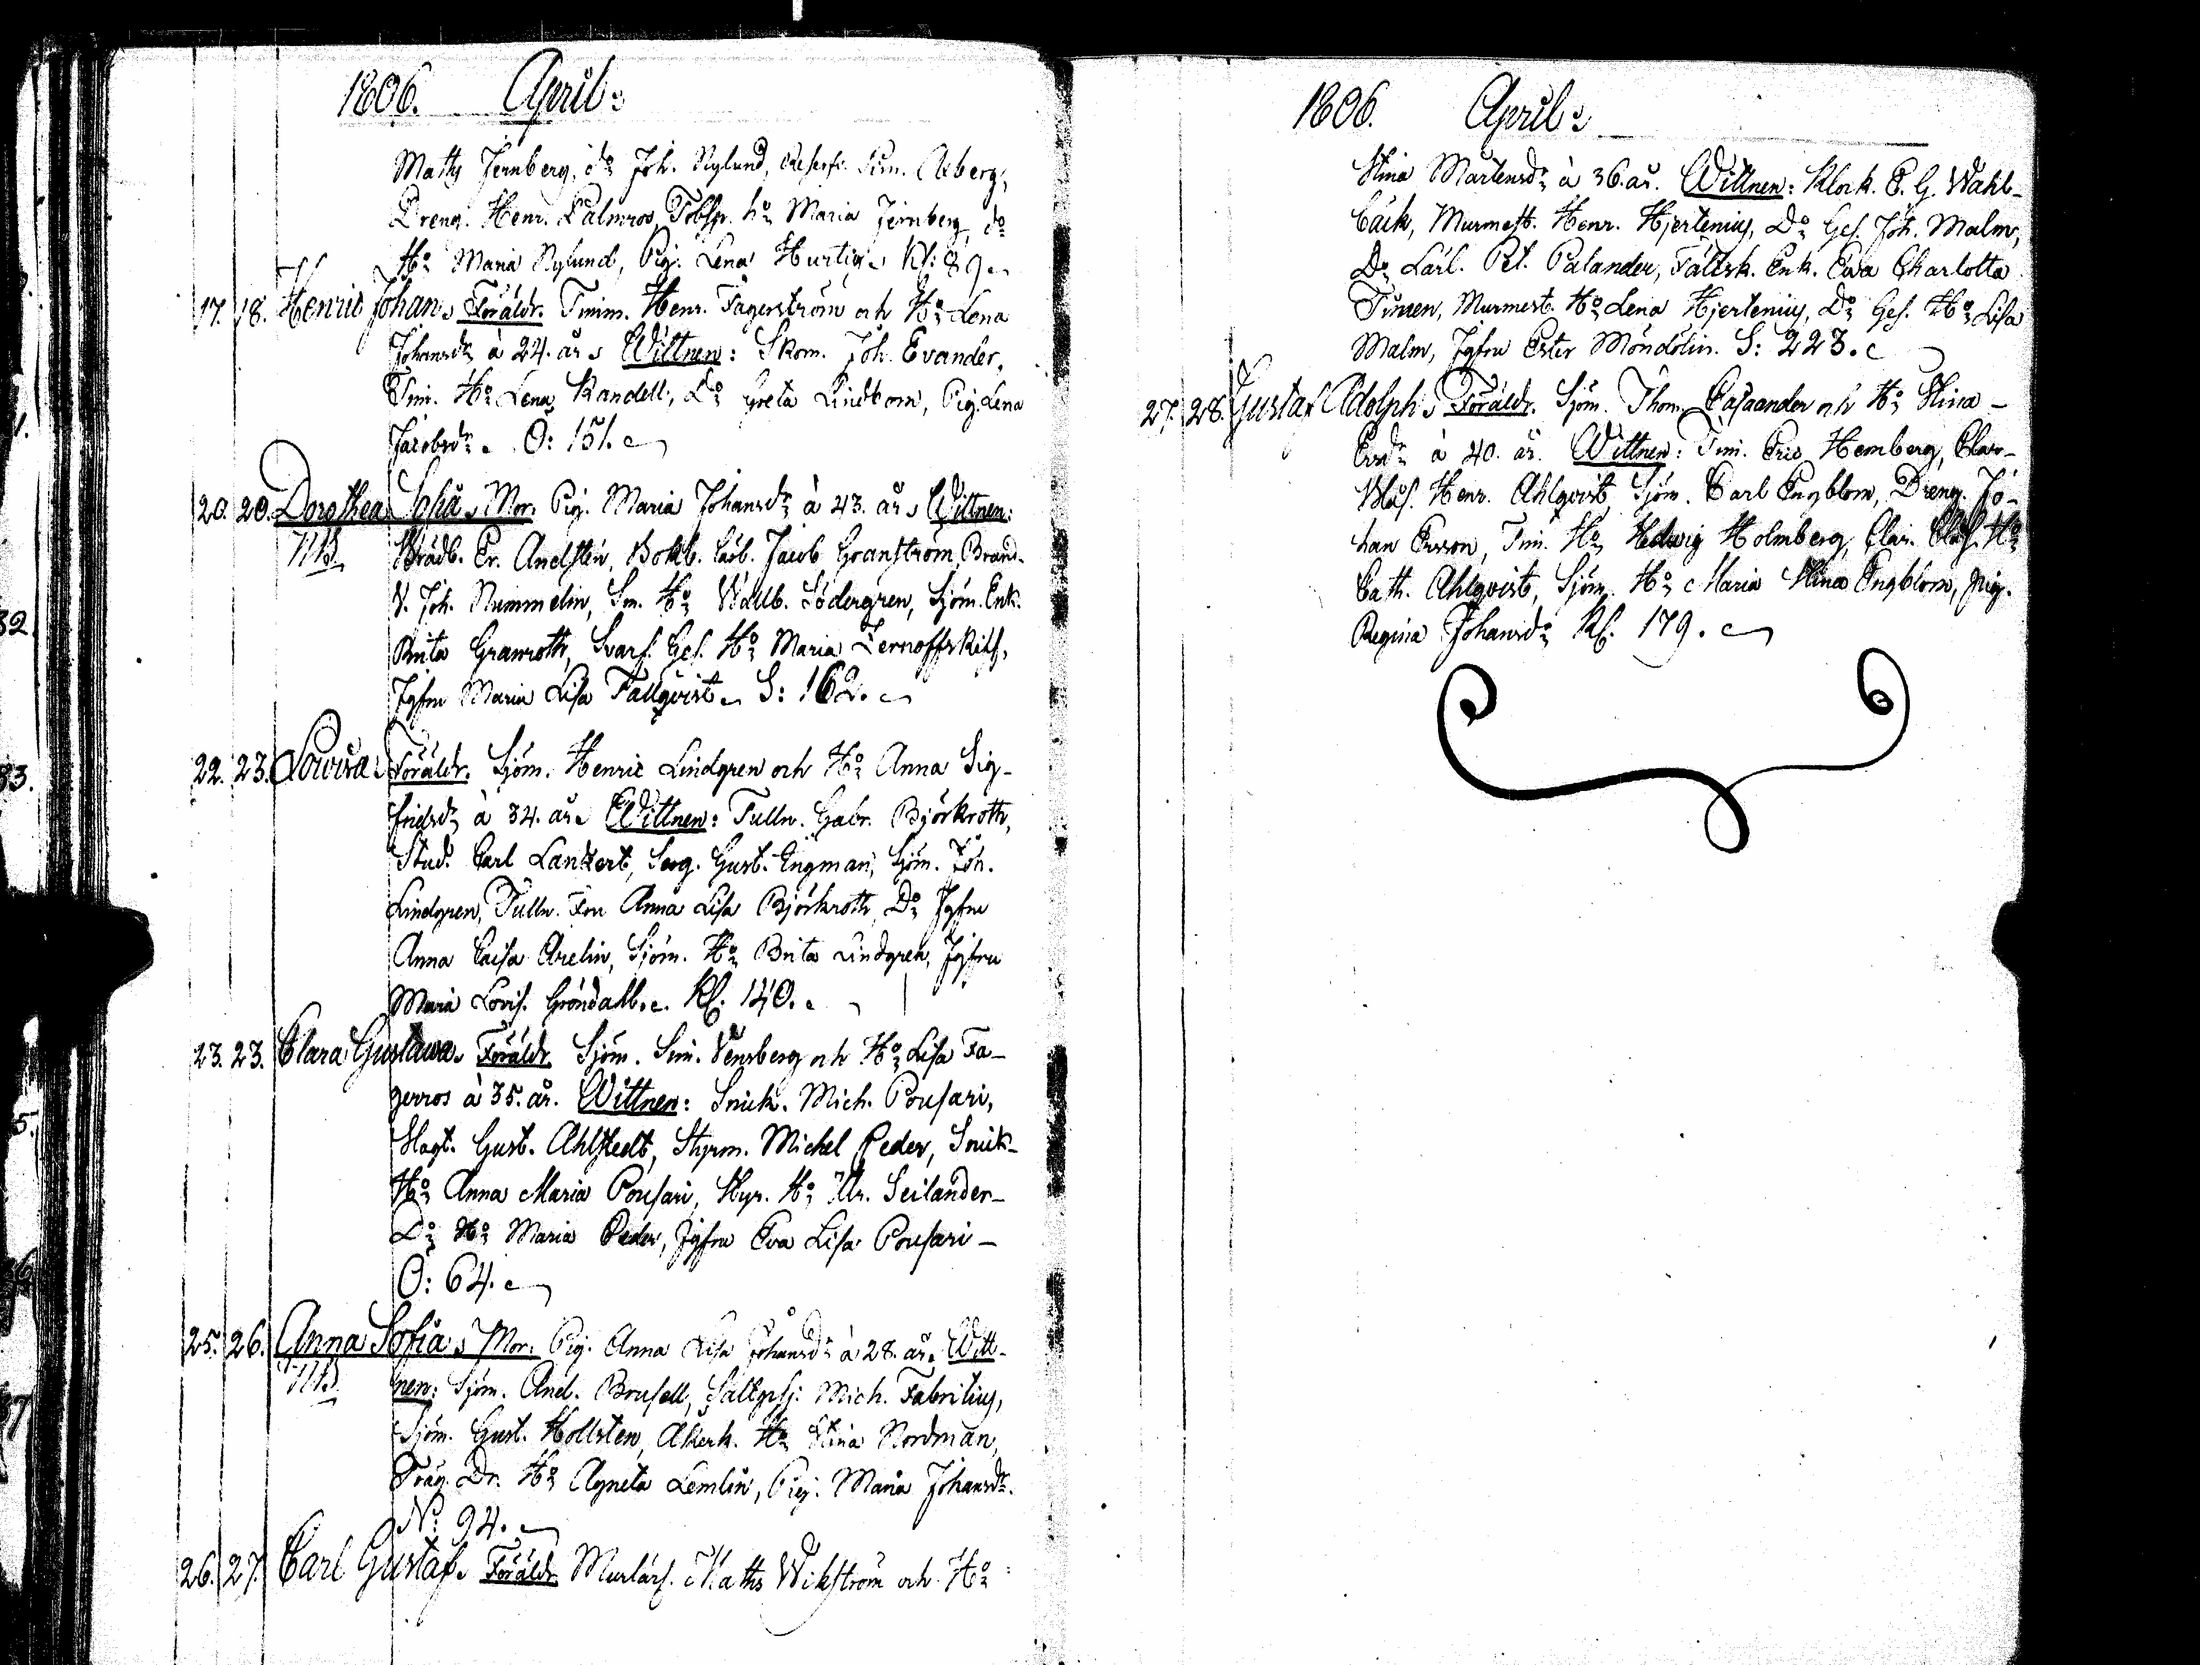 1806. April:
Maths Jernberg, do Joh. Nylund, Sim. Åberg,
Dreng. Henr. Palmros, Tobsp. ho Maria Jernberg, do
Ho Maria Nylund, Pig. Lena Hurtig. Kl: 89.
17. 18. Henric Johan. Föräldr. Timm. Henr. Fagerström och Ho Lena
Johansdr à 24. år. Wittnen: Skom. Joh. Evander,
Tim. Ho Lena Randell, Do Greta Lindbom, Pig. Lena
Jacobsdr. O: 151.
20. 20. Dorothea Sofia. Mor. Pig. Maria Johansdr à 43. år. Wittnen:
NB. Er. Anelsten, Bokb. Jacob Granström, Brand-
V. Joh. Nummelin, Sm. Ho Wallb. Södergren, Sjöm. Enk.
Brita Granroth, Svarf. Ges. Ho Maria
Jgfru Maria Lisa Fallqvist. S: 162.
22. 23. Lowisa. Föräldr. Sjöm. Henric Lindgren och Ho Anna Sig-
fridsdr à 34. år. Wittnen: Tulln. Gabr. Björkroth,
Stud. Carl Lankert, Serg. Gust. Engman, Sjöm. Joh.
Lindgren, Tulln. Fru Anna Lisa Björkroth, Do Jgfru
Anna Caisa Arelin, Sjöm. Ho Brita Lindgren, Jgfru
Maria Lovis. Gröndahl. Kl. 140.
23. 23. Clara Gustawa. Föräldr. Sjöm. Sim. Vensberg och Ho Lisa Fa-
gerros à 35. år. Wittnen: Snick. Mich. Pousari,
Slagt. Gust. Ahlstedt, Styrm. Michel Peder, Snick-
Ho Anna Maria Pousari, Styr. Ho Ulr. Seilander-
Do Ho Maria Peder, Jgfru Eva Lisa Pousari-
O: 64.
25. 26. Anna Sofia. Mor. Pig. Anna Lisa Johansdr à 28. år. Witt-
NB. nen: Sjöm. And. Brusell, Mich. Fabritius,
Sjöm. Gust. Hollsten, Åkerk. Ho Stina Nordman,
Dr. Ho Agneta Lemlin, Pig. Maria Johansdr.
No 94.
26. 27. Carl Gustaf. Föräldr. Murlärl. Maths Wikström och Ho
1806. April:
Stina Mårtensdr à 36. år. Wittnen: Klock. C. G. Wahl-
bäck, Murmest. Henr. Hjertenius, Do Ges. Joh. Malm,
Do Lärl. Pet. Palander, Fältsk. Enk. Eva Charlotta
Murmest. Ho Lena Hjertenius, Do Ges. Ho Lisa
Malm, Jgfru Ester Möndolin. S: 223.
27. 28. Gustaf Adolph. Föräldr. Sjöm. Thom. Casaander och Ho Stina-
Ersdr à 40. år. Wittnen: Tim. Eric Hemberg, Clav-
Henr. Ahlqvist, Sjöm. Carl Engblom, Dreng. Jo-
han Ersson, Tim. Ho Hedwig Holmberg, Ho
Cath. Ahlqvist, Sjöm. Ho Maria Stina Engblom, pig.
Regina Johansdr Kl. 179.